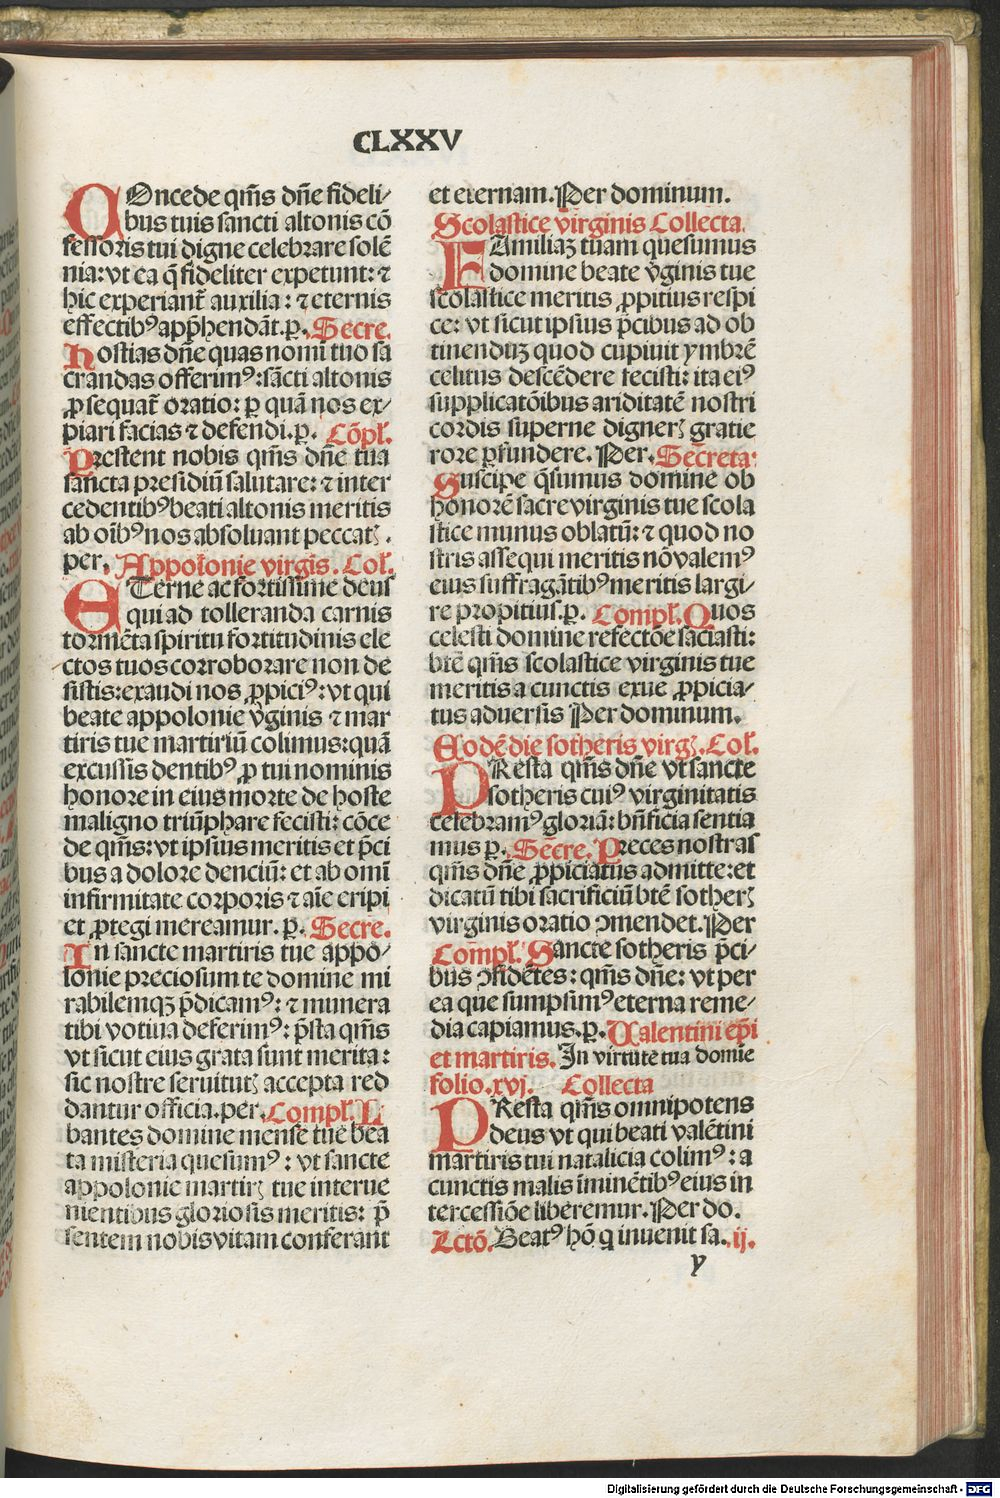 CLXXV
COncede qm̄s dn̄e fideli⸗
bus tuis sancti altonis cō
fessoris tui digne celebrare solē
nia: vt ea q̄ fideliter expetunt: ⁊
hic experiant̄ auxilia: ⁊ eternis
effectibꝰ app̄hendāt. p̱. Secre.
Hostias dn̄e quas nomī tuo sa
crandas offerimꝰ: sācti altonis
ꝓsequat̄ oratio: p̱ quā nos ex⸗
piari facias ⁊ defendi. p̱. Cōpl̄.
Prestent nobis qm̄s dn̄e tua
sancta presidiū salutare: ⁊ inter
cedentibꝰ beati altonis meritis
ab oībꝰ nos absoluant peccatꝭ.
per. Appolonie virgīs. Col̄.
ETerne ac fortissime deus
qui ad tolleranda carnis
tormēta spiritu fortitudinis ele
ctos tuos corroborare non de
sistis: exaudi nos ꝓpiciꝰ: vt qui
beate appolonie v̄ginis ⁊ mar
tiris tue martiriū colimus: quā
excussis dentibꝰ ꝓ tui nominis
honore in eius morte de hoste
maligno triūphare fecisti: cōce
de qm̄s: vt ipsius meritis et p̄ci
bus a dolore denciū: et ab omī
infirmitate corporis ⁊ aīe eripi
et ꝓtegi mereamur. p̱. Secre.
In sancte martiris tue appo⸗
lonie preciosum te domine mi
rabilemqꝫ p̄dicamꝰ: ⁊ munera
tibi votiua deferimꝰ: p̄sta qm̄s
vt sicut eius grata sunt merita:
sic nostre seruitutꝭ accepta red
dantur officia. per. Compl̄. Li
bantes domine mense tue bea
ta misteria quesumꝰ: vt sancte
appolonie martirꝭ tue interue
nientibus gloriosis meritis: p̄
sentem nobis vitam conferant
et eternam. Per dominum.
Scolastice virginis Collecta.
FAmiliaꝫ tuam quesumus
domine beate v̄ginis tue
scolastice meritis ꝓpitius respi
ce: vt sicut ipsius p̄cibus ad ob
tinenduꝫ quod cupiuit ymbrē
celitus descēdere fecisti: ita eiꝰ
supplicatōibus ariditatē nostri
cordis superne dignerꝭ gratie
rore p̱fundere. Per. Secreta:
Suscipe q̄sumus domine ob
honorē sacre virginis tue scola
stice munus oblatū: ⁊ quod no
stris assequi meritis nō valemꝰ
eius suffragātibꝰ meritis largi
re propitius. p̱. Compl̄. Quos
celesti domine refectōe saciasti:
btē qm̄s scolastice virginis tue
meritis a cunctis exue ꝓpicia⸗
tus aduersis Per dominum.
Eodē die sotheris virgꝭ. Col̄.
PResta qm̄s dn̄e vt sancte
sotheris cuiꝰ virginitatis
celebramꝰ gloriā: bn̄ficia sentia
mus p̱. Secre. Preces nostras
qm̄s dn̄e ꝓpiciatus admitte: et
dicatū tibi sacrificiū btē sotherꝭ
virginis oratio ꝯmendet. Per
Compl̄. Sancte sotheris p̄ci⸗
bus ꝯfidētes: qm̄s dn̄e: vt per
ea que sumpsimꝰ eterna reme⸗
dia capiamus. p̱. Valentini ep̄i
et martiris. In virtute tua domīe
folio. xvj. Collecta
PResta qm̄s omnipotens
deus vt qui beati valētini
martiris tui natalicia colimꝰ: a
cunctis malis īminētibꝰ eius in
tercessiōe liberemur. Per do.
Lctō. Beatꝰ hō q̄ inuenit sa. ij.
y
Digitalisierung gefördert durch die Deutsche Forschungsgemeinschaft - DFG